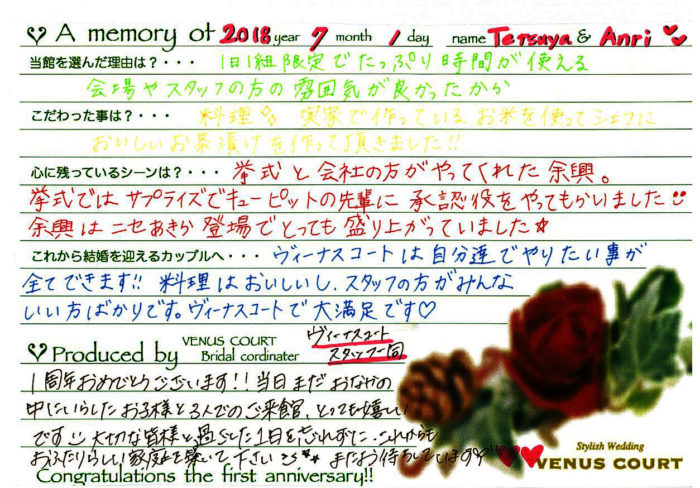 A memory of 2018 year 7 month 1 day name Tetsuya & Anri
当館を選んだ理由は？・・・ 1日1組限定でたっぷり時間が使える
会場やスタッフの方の雰囲気が良かったから
こだわった事は？・・・ 料理 実家で作っているお米を使ってシェフに
おいしいお茶漬けを作って頂きました!!
心に残っているシーンは？・・・ 挙式と会社の方がやってくれた余興。
挙式ではサプライズでキューピットの先輩に承認役をやってもらいました
余興はニセあきら登場でとっても盛り上がっていました☆
これから結婚を迎えるカップルへ・・・ ヴィーナスコートは自分達でやりたい事が
全てできます!! 料理はおいしいし、スタッフの方がみんな
いい方ばかりです。ヴィーナスコートで大満足です♡
Produced by VENUS COURT Bridal cordinater ヴィーナスコート スタッフ一同
1周年おめでとうございます!! 当日まだおなかの
中にいらしたお子様と3人でのご来館、とっても嬉しい
です 大切な皆様と過ごした1日を忘れずに、これからも
おふたりらしい家庭を築いて下さい またお待ちしています
Congratulations the first anniversary!!
Stylish Wedding
VENUS COURT